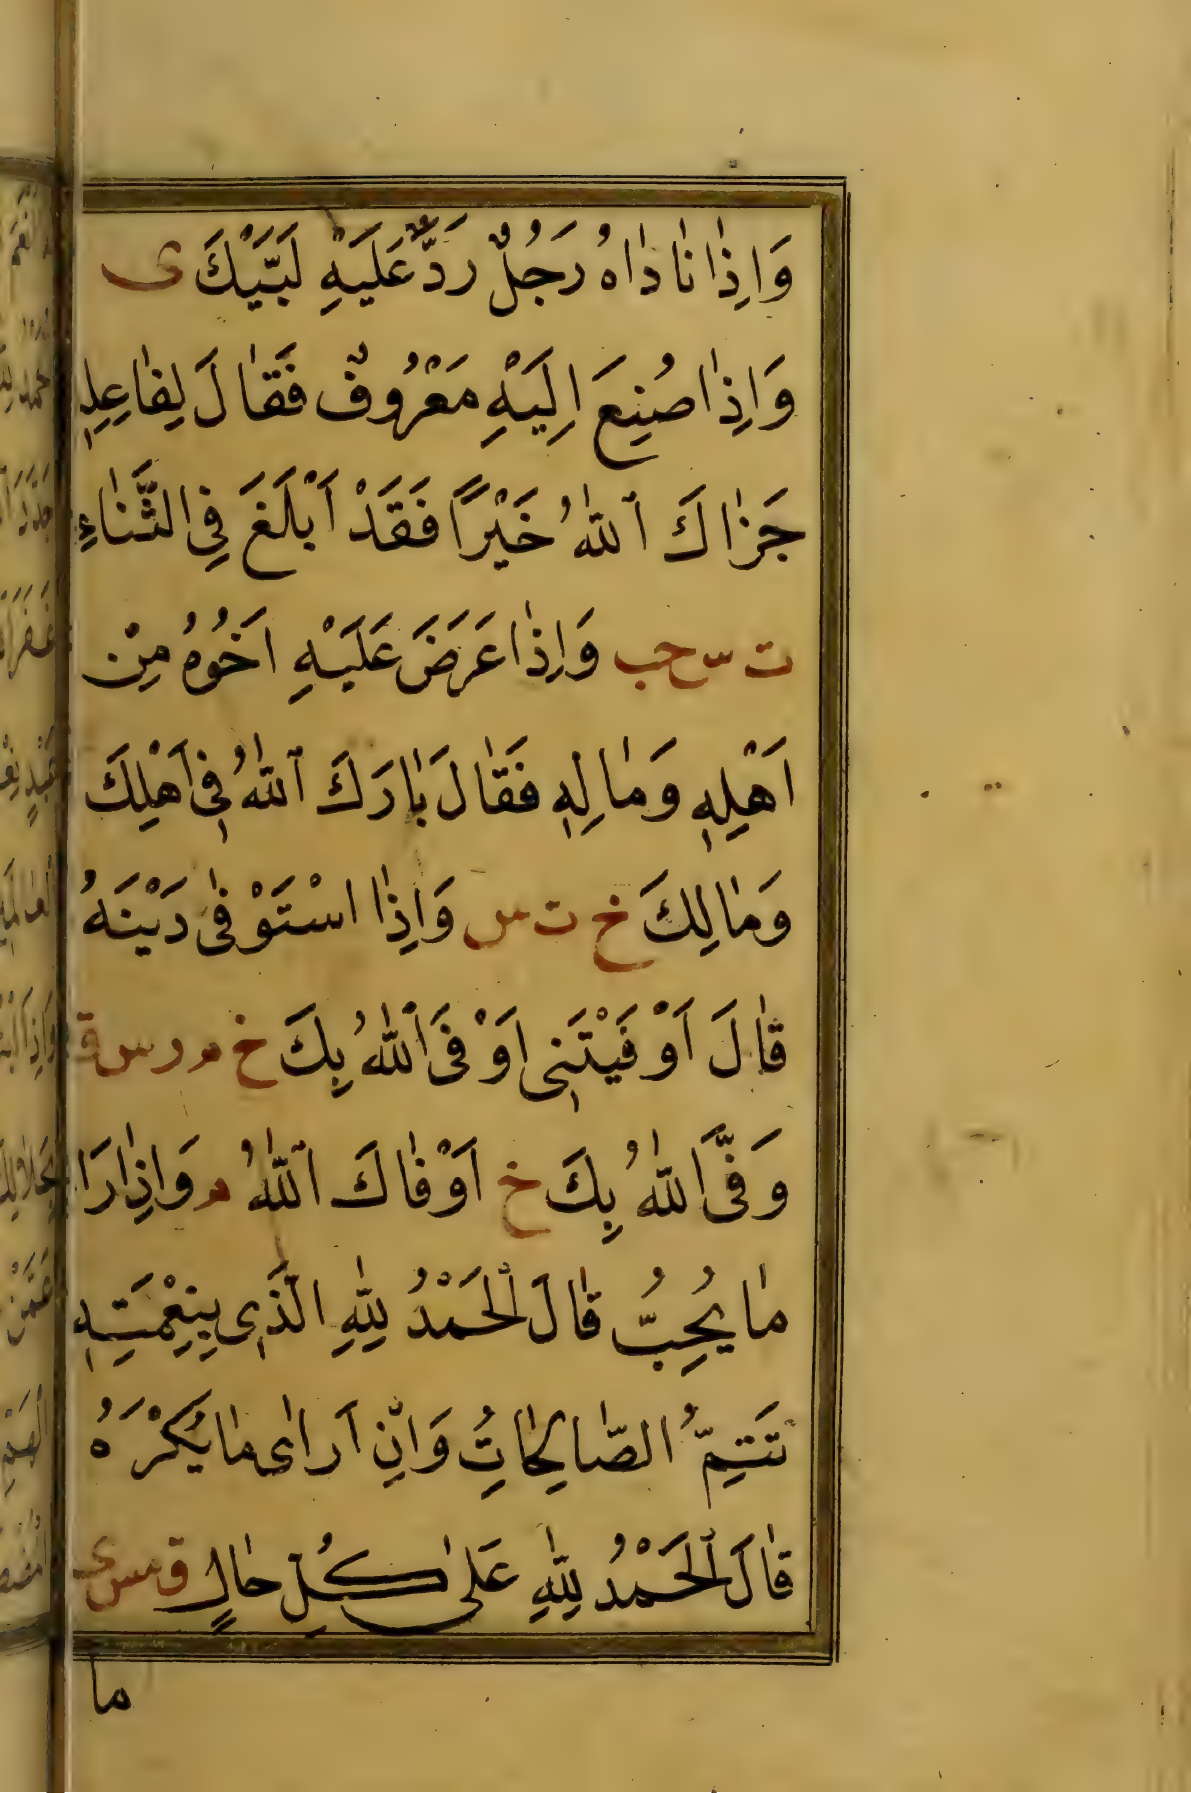 وَاِذَا نَادَاهُ رَجُلٌ رَدَّ عَلَيْهِ لَبَّيْكَ ى
وَاِذَا صُنِعَ اِلَيْهِ مَعْرُوفٌ فَقَالَ لِفَاعِلِهِ
جَزَاكَ ٱللّٰهُ خَيْرًا فَقَدْ اَبْلَغَ فِى الثَّنَاءِ
ت س حب وَاِذَا عَرَضَ عَلَيْهِ اَخُوهُ مِنْ
اَهْلِهِ وَمَالِهِ فَقَالَ بَارَكَ ٱللّٰهُ فِى اَهْلِكَ
وَمَالِكَ خ ت س وَاِذَا اسْتَوْفٰى دَيْنَهُ
قَالَ اَوْفَيْتَنِى اَوْفَى ٱللّٰهُ بِكَ خ م ر س ق
وَفَّى اللّٰهُ بِكَ خ اَوْفَاكَ ٱللّٰهُ م وَاِذَا رَا
مَا يُحِبُّ قَالَ ٱلْحَمْدُ لِلّٰهِ الَّذِى بِنِعْمَتِهِ
تَتِمُّ الصَّالِحَاتُ وَاِنْ رَاٰى مَا يَكْرَهُ
قَالَ ٱلْحَمْدُ لِلّٰهِ عَلٰى كُلِّ حَالٍ ق س ى
ما